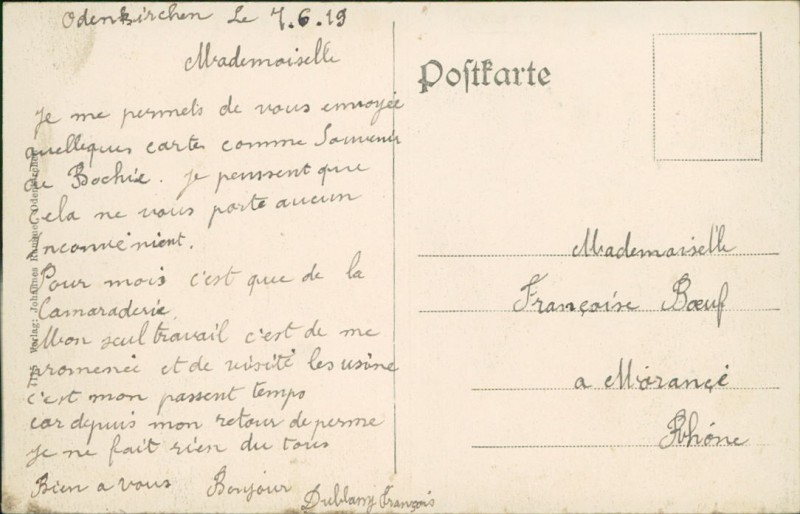 Odenkirchen Le 7.6.19
Mademoiselle
Je me permets de vous envoyée
quelleques carte comme Souvenir
de Bochie. Je penssent que
Cela ne vous porte aucun
Inconvénient.
Pour mois c'est que de la
Camaraderie.
Mon seul travail c'est de me
promenée et de visité les usine
c'est mon passent temps
car depuis mon retour de perme
Je ne fait rien du tous
Bien a vous Bonjour
Dublany François
Verlag: Johannes
Postkarte
Mademoiselle
Françoise Bœuf
a Morançé
Rhóne